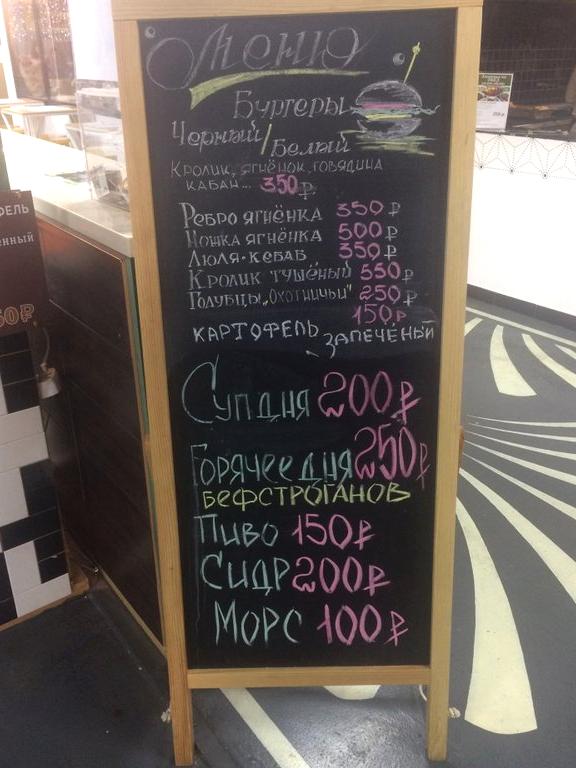 Меню
Бургеры
Черный / Белый
Кролик, ягнёнок, говядина
кабан... 350₽
Ребро ягнёнка 350₽
Ножка ягнёнка 500₽
Люля-кебаб 350₽
Кролик тушёный 550₽
Голубцы „Охотничьи" 250₽
150₽
картофель запеченый
Суп дня 200₽
Горячее дня 250₽
Бефстроганов
Пиво 150₽
Сидр 200₽
Морс 100₽